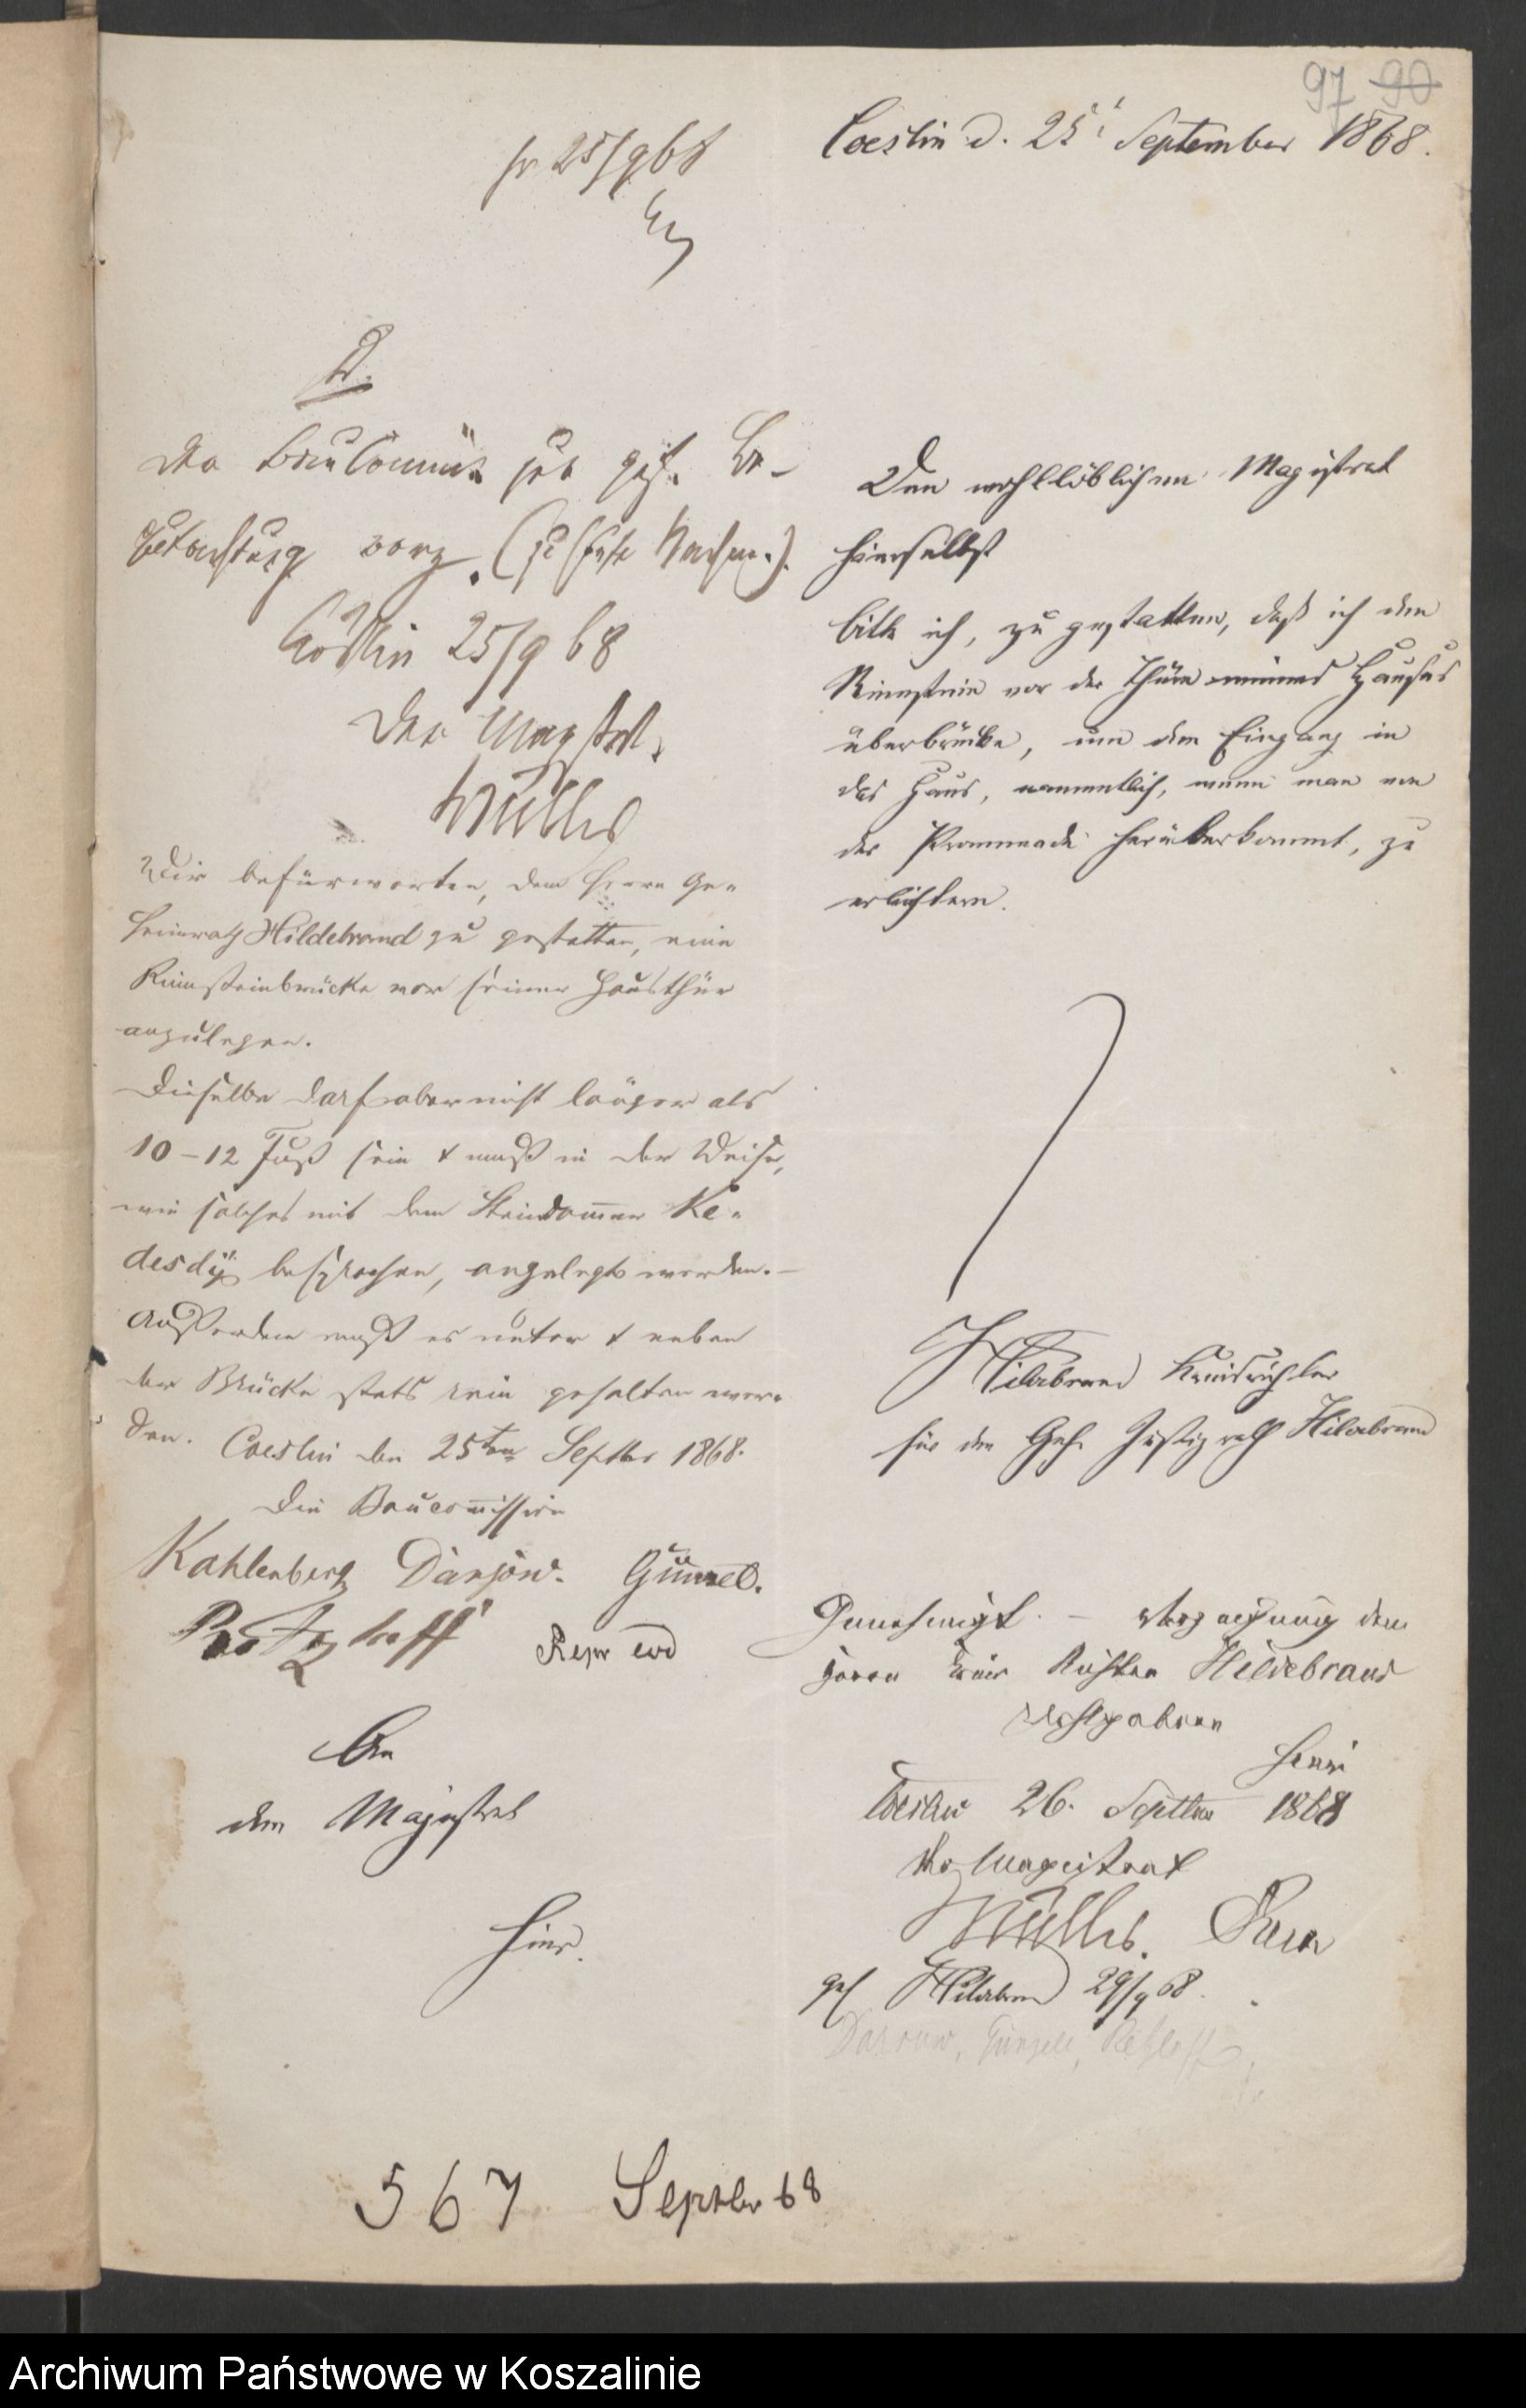 97 90
Coeslin d. 25t September 1868.
pr 25/9 68
Der Bau Commiss. zur gef. Be-
gutachtung vorz.
Cöslin 25/9 68
Der Magistrat.
Müller
Wir befürworten, dem Herrn Ge-
heimrath Hildebrand zu gestatten, eine
Rinnsteinbrücke vor seiner Hausthür
anzulegen.
Dieselbe darf aber nicht länger als
10-12 Fuß sein & muß in der Weise,
wie solches mit dem Steindammer Ke-
desdÿ besprochen, angelegt werden.-
Außerdem muß es unter & neben
der Brücke stets rein gehalten wer-
den. Coeslin den 25ten Septbr 1868.
Die Baucommission
Kahlenberg Darsow. Gümzel.
An
den Magistrat
hier.
Den wohllöblichen Magistrat
hierselbst
bitte ich, zu gestatten, daß ich den
Rinnstein vor der Thüre meines Hauses
überbrücke, um den Eingang in
das Haus, namentlich, wenn man von
der Promenade herüberkommt, zu
erleichtern.
Hildebrand Kreisrichter
für den Geh. Justizrath Hildebrand
Genehmigt. -
Herrn Kreis Richter Hildebrand
Wohlgeboren
hier
Coeslin 26. Septbr 1868
Der Magistrat
Müller.
gel Hildebrand 29/9 68.
Darsow,
567 Septbr 68
Archiwum Państwowe w Koszalinie